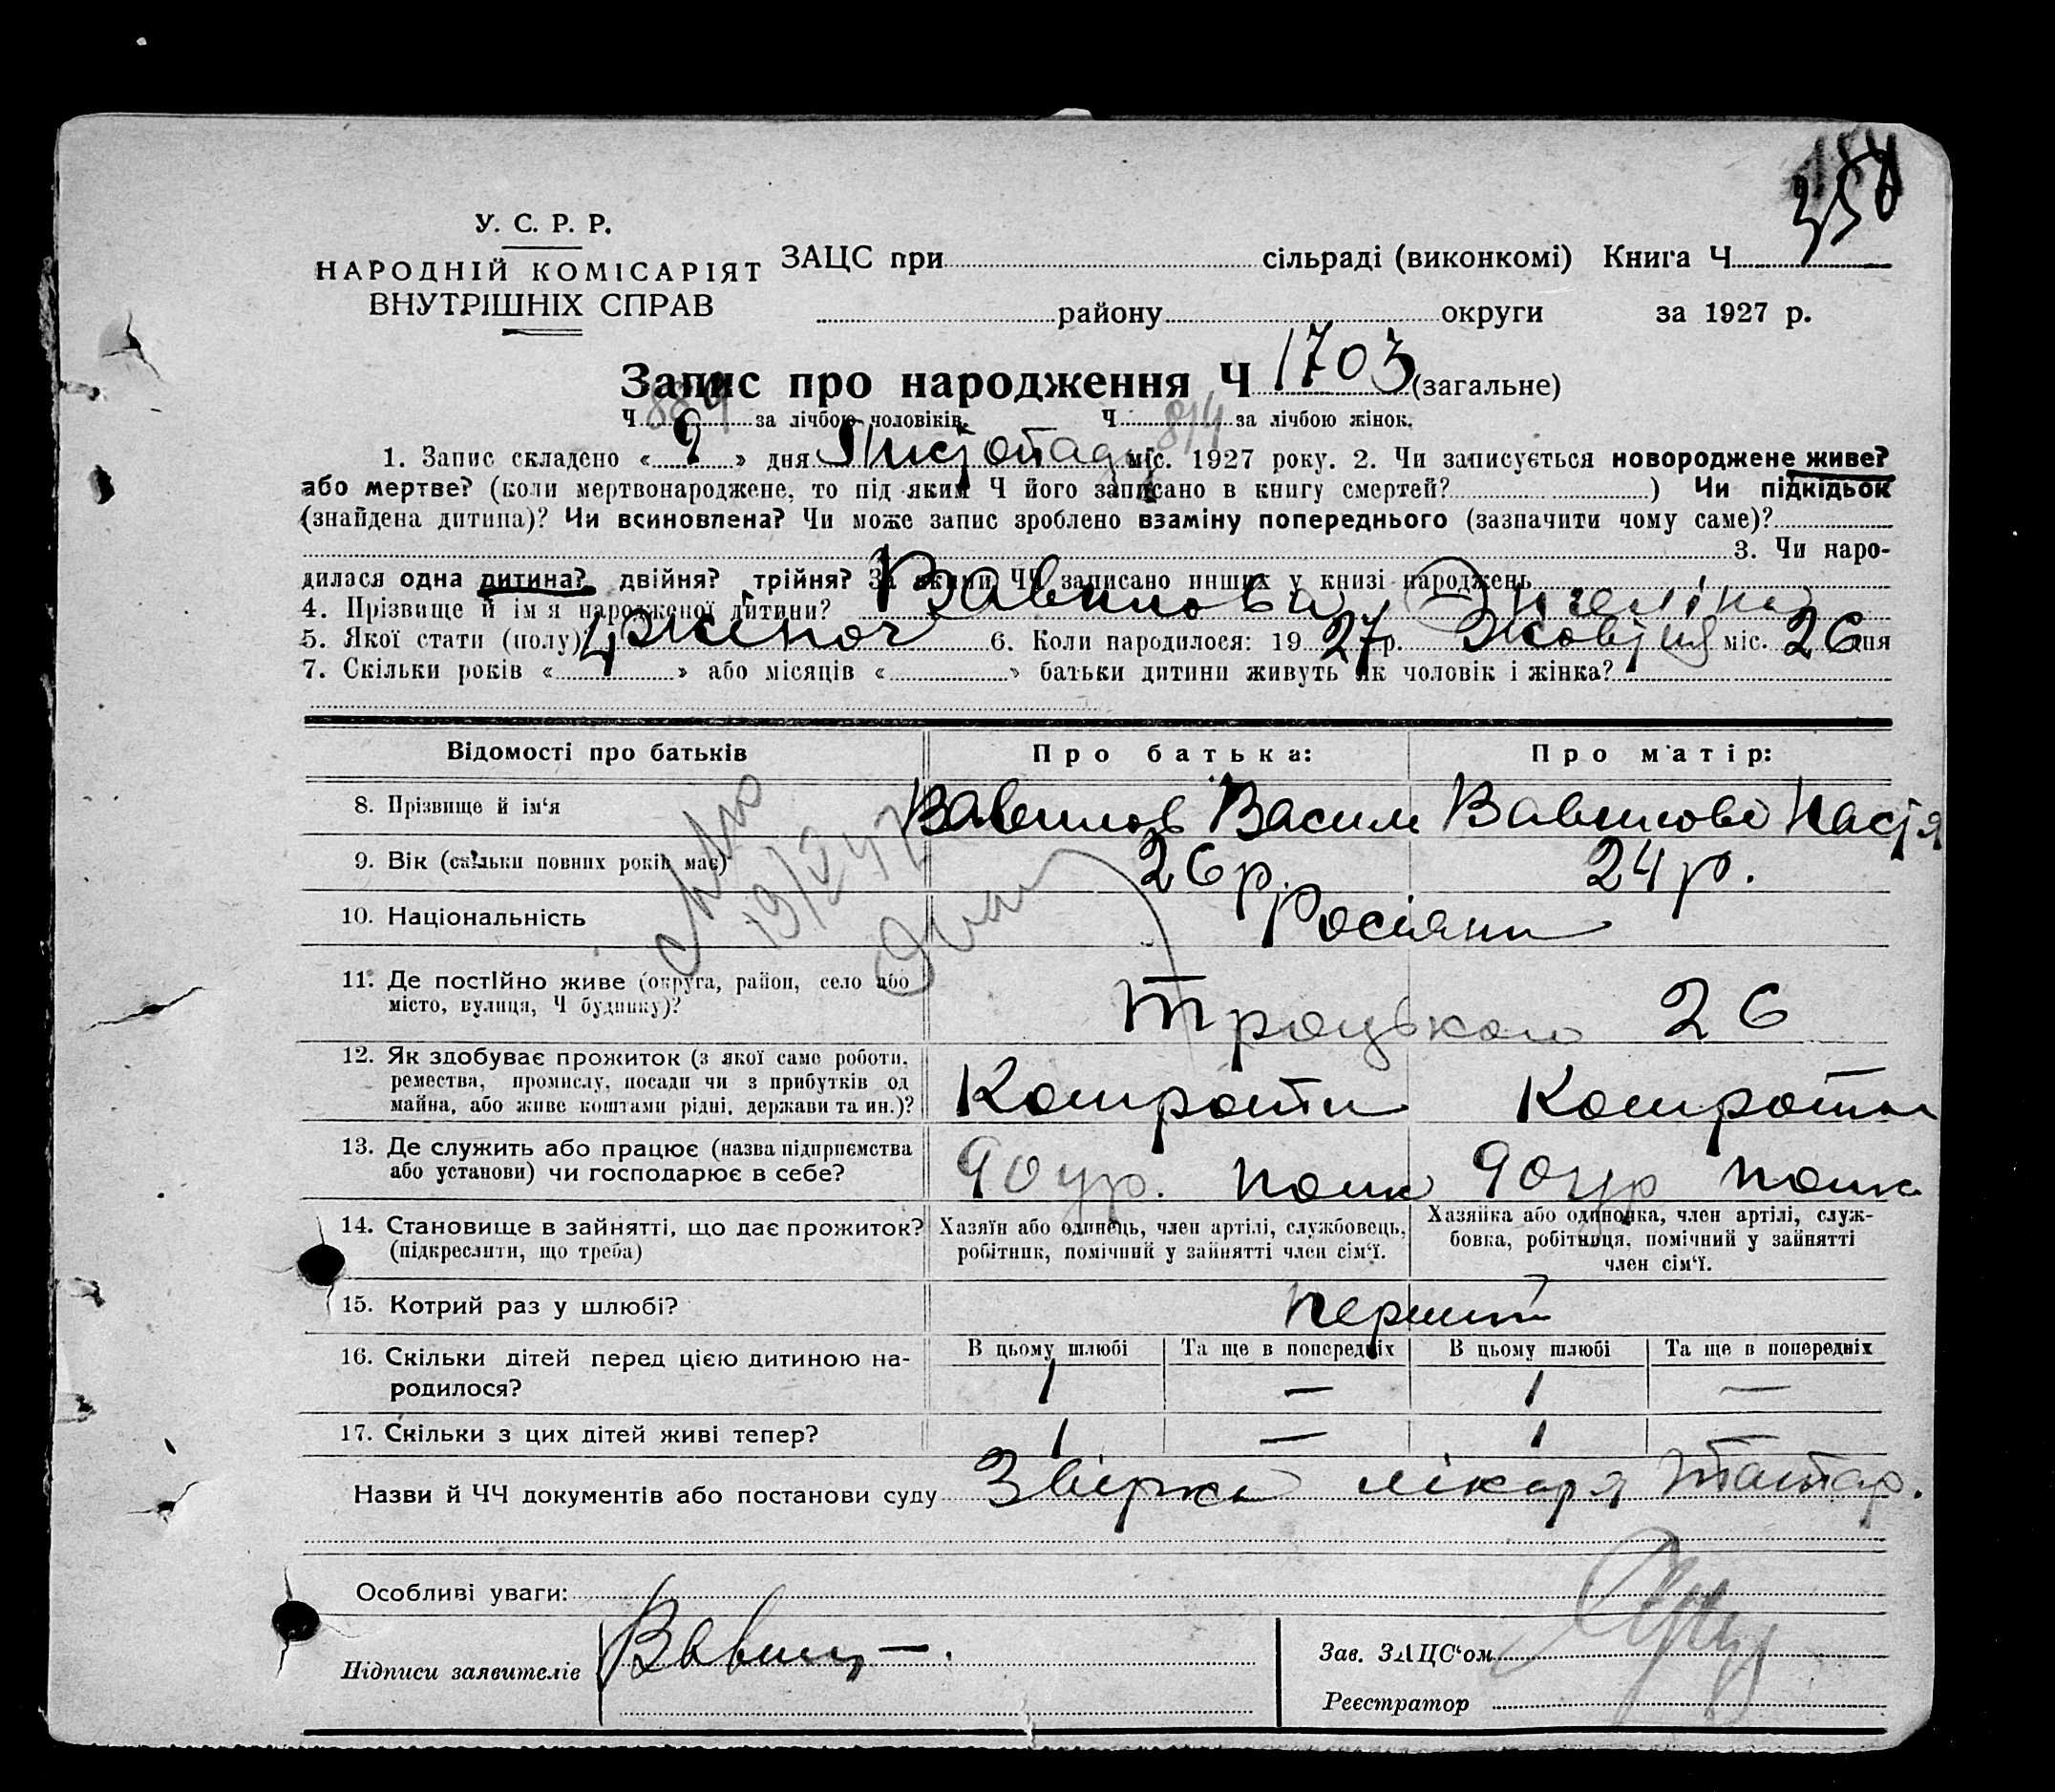 350
У. С. Р. Р.
НАРОДНІЙ КОМІСАРІЯТ
ВНУТРІШНІХ СПРАВ
ЗАЦС при сільраді (виконкомі) Книга Ч
району округи за 1927 р.
Запис про народження Ч 1703 (загальне)
Ч 889 за лічбою чоловіків. Ч 814 за лічбою жінок.
1. Запис складено « 9 » дня Листопаду міс. 1927 року. 2. Чи записується новороджене живе?
або мертве? (коли мертвонароджене, то під яким Ч його записано в книгу смертей? ) Чи підкідьок
(знайдена дитина)? Чи всиновлена? Чи може запис зроблено взаміну попереднього (зазначити чому саме)?
3. Чи наро-
дилася одна дитина? двійня? трійня? За якими ЧЧ записано инших у книзі народжень
4. Прізвище й ім'я народженої дитини? Вавилова Энгеліна
5. Якої стати (полу)? жіноч 6. Коли народилося: 1927 р. Жовтня міс. 26 дня
7. Скільки років « 4 » або місяців « » батьки дитини живуть як чоловік і жінка?
Відомості про батьків Про батька: Про матір:
8. Прізвище й ім'я Вавилов Васили Вавилова Настя
9. Вік (скільки повних років має) 26 р. 24 р.
10. Національність Росіяни
11. Де постійно живе (округа, район, село або
місто, вулиця, Ч будинку)? Троцького 26
12. Як здобуває прожиток (з якої саме роботи,
ремества, промислу, посади чи з прибутків од
майна, або живе коштами рідні, держави та ин.)?
13. Де служить або працює (назва підприємства
або установи) чи господарює в себе? 90 ур. полк 90 ур полк
14. Становище в зайнятті, що дає прожиток?
(підкреслити, що треба)
Хазяїн або одинець, член артілі, службовець,
робітник, помічний у зайнятті член сім'ї.
Хазяйка або одиночка, член артілі, служ-
бовка, робітниця, помічний у зайнятті
член сім'ї.
15. Котрий раз у шлюбі? перший
16. Скільки дітей перед цією дитиною на-
родилося?
В цьому шлюбі Та ще в попередніх В цьому шлюбі Та ще в попередніх
1 — 1 —
17. Скільки з цих дітей живі тепер? 1 — 1
Назви й ЧЧ документів або постанови суду Звірка лікаря Татар.
Особливі уваги:
Підписи заявителів
Зав. ЗАЦС'ом
Реєстратор